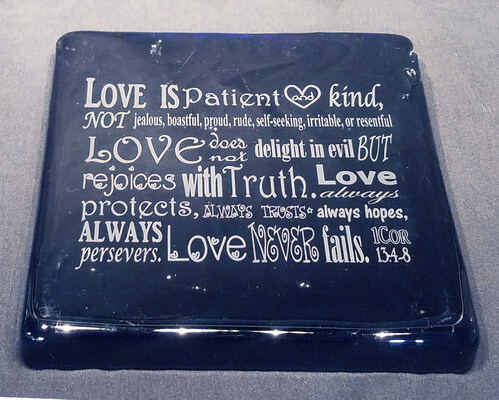 LOVE IS Patient and kind,
NOT jealous, boastful, proud, rude, self-seeking, irritable, or resentful
LOVE does not delight in evil BUT
rejoices with Truth. Love always
protects, ALWAYS TRUSTS always hopes,
ALWAYS persevers. Love NEVER fails. 1COR 13:4-8